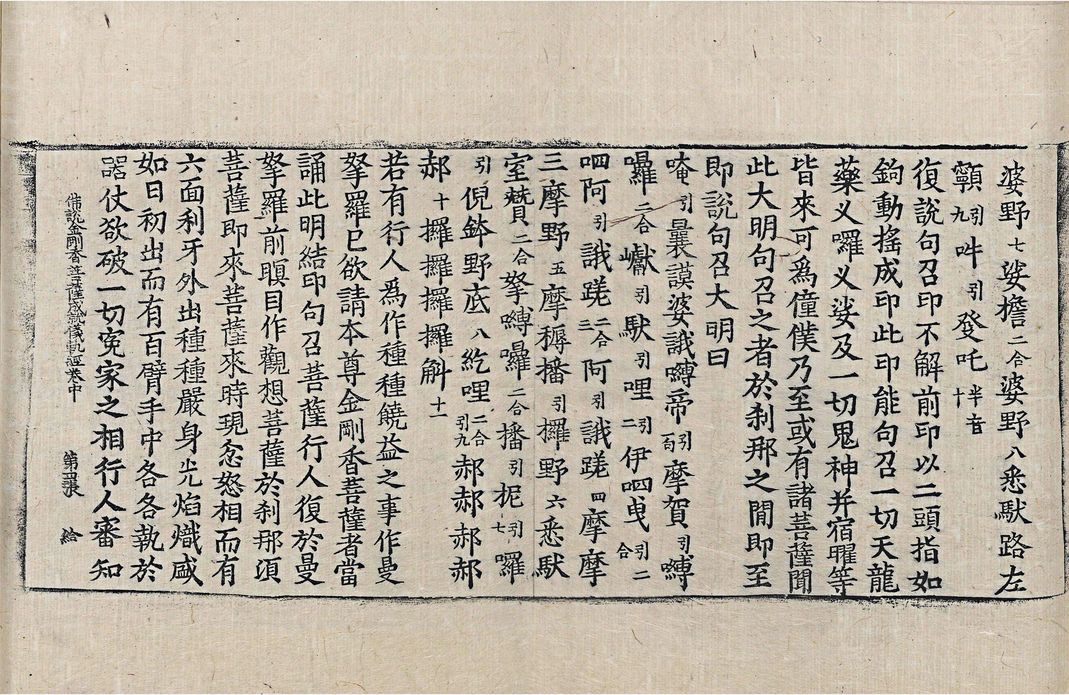 婆野七娑擔二合婆野八悉馱路左
顎引九吽引發吒半音十
復說句召印不解前印以二頭指如
鉤動搖成印此印能句召一切天龍
藥义囉义娑及一切鬼神并宿曜等
皆來可為僮僕乃至或有諸菩薩聞
此大明句召之者於刹那之閒即至
即說句召大明曰
唵引曩謨婆誐嚩帝引一句摩賀引嚩
囉二合巘引馱引哩引二伊呬曳引二合
呬阿引誐蹉二合三阿引誐蹉四摩摩
三摩野五摩稱播引攞野六悉馱
室二合拏嚩囉二合播引抳引七囉
引倪鉢野底八紇哩二合引九郝郝郝郝
郝十攞攞攞攞斛十一
若有行人為作種種饒益之事作曼
拏羅已欲請本尊金剛香菩薩者當
誦此明結印句召菩薩行人復於曼
拏羅前瞋目作觀想菩薩於刹那須
菩薩即來菩薩來時現忿怒相而有
六面利牙外出種種嚴身光焰熾盛
如日初出而有百臂手中各各執於
器仗欲破一切冤家之相行人審知
佛說金剛香菩薩儀軌經卷中 第四張